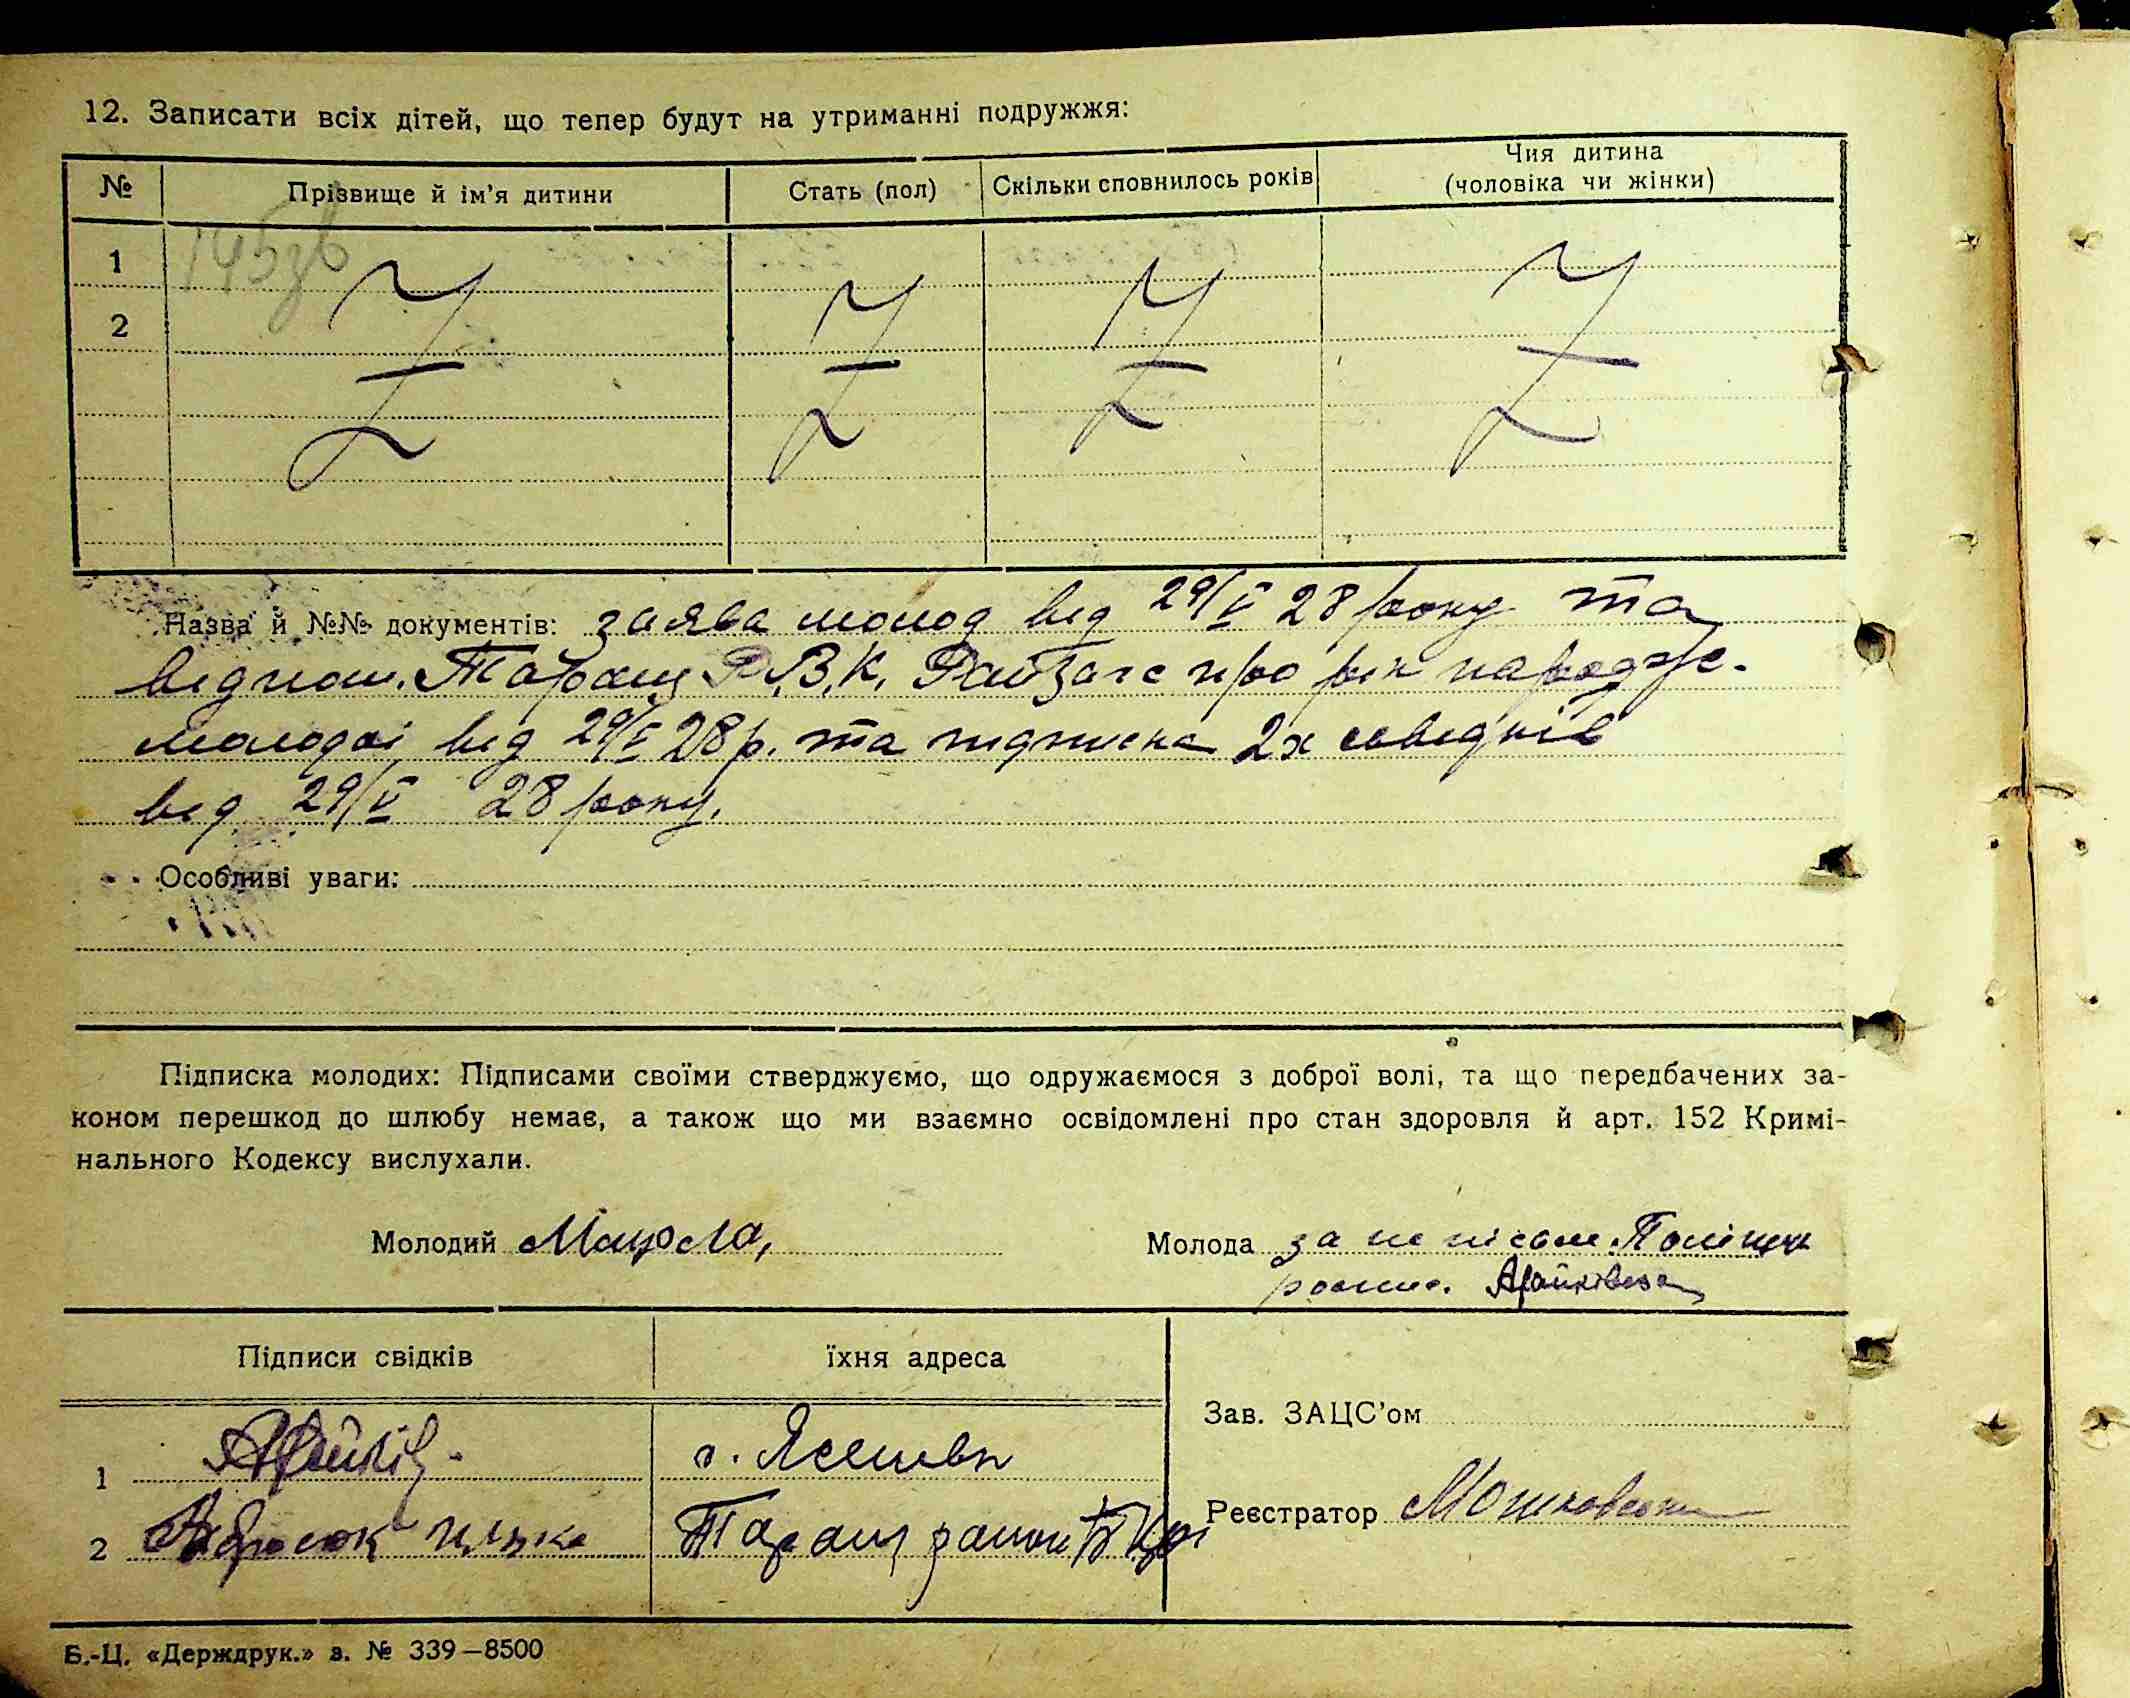 12. Записати всіх дітей, що тепер будут на утриманні подружжя:
№ Прізвище й ім'я дитини Стать (пол) Скільки сповнилось років Чия дитина (чоловіка чи жінки)
1
2
Назва й №№ документів: заява молод від 29/V 28 року та
віднош. Таращ Р.В.К. Райзагс про рік народж.
молодої від 29/V 28 р. та підписка 2х свідків
від 29/V 28 року.
Особливі уваги:
Підписка молодих: Підписами своїми стверджуємо, що одружаємося з доброї волі, та що передбачених за-
коном перешкод до шлюбу немає, а також що ми взаємно освідомлені про стан здоровля й арт. 152 Кримі-
нального Кодексу вислухали.
Молодий Молода за не пісьм.
розпис.
Підписи свідків їхня адреса
Зав. ЗАЦС'ом
1
Реєстратор
2 Таращ район БЦер
Б.-Ц. «Держдрук.» з. № 339—8500